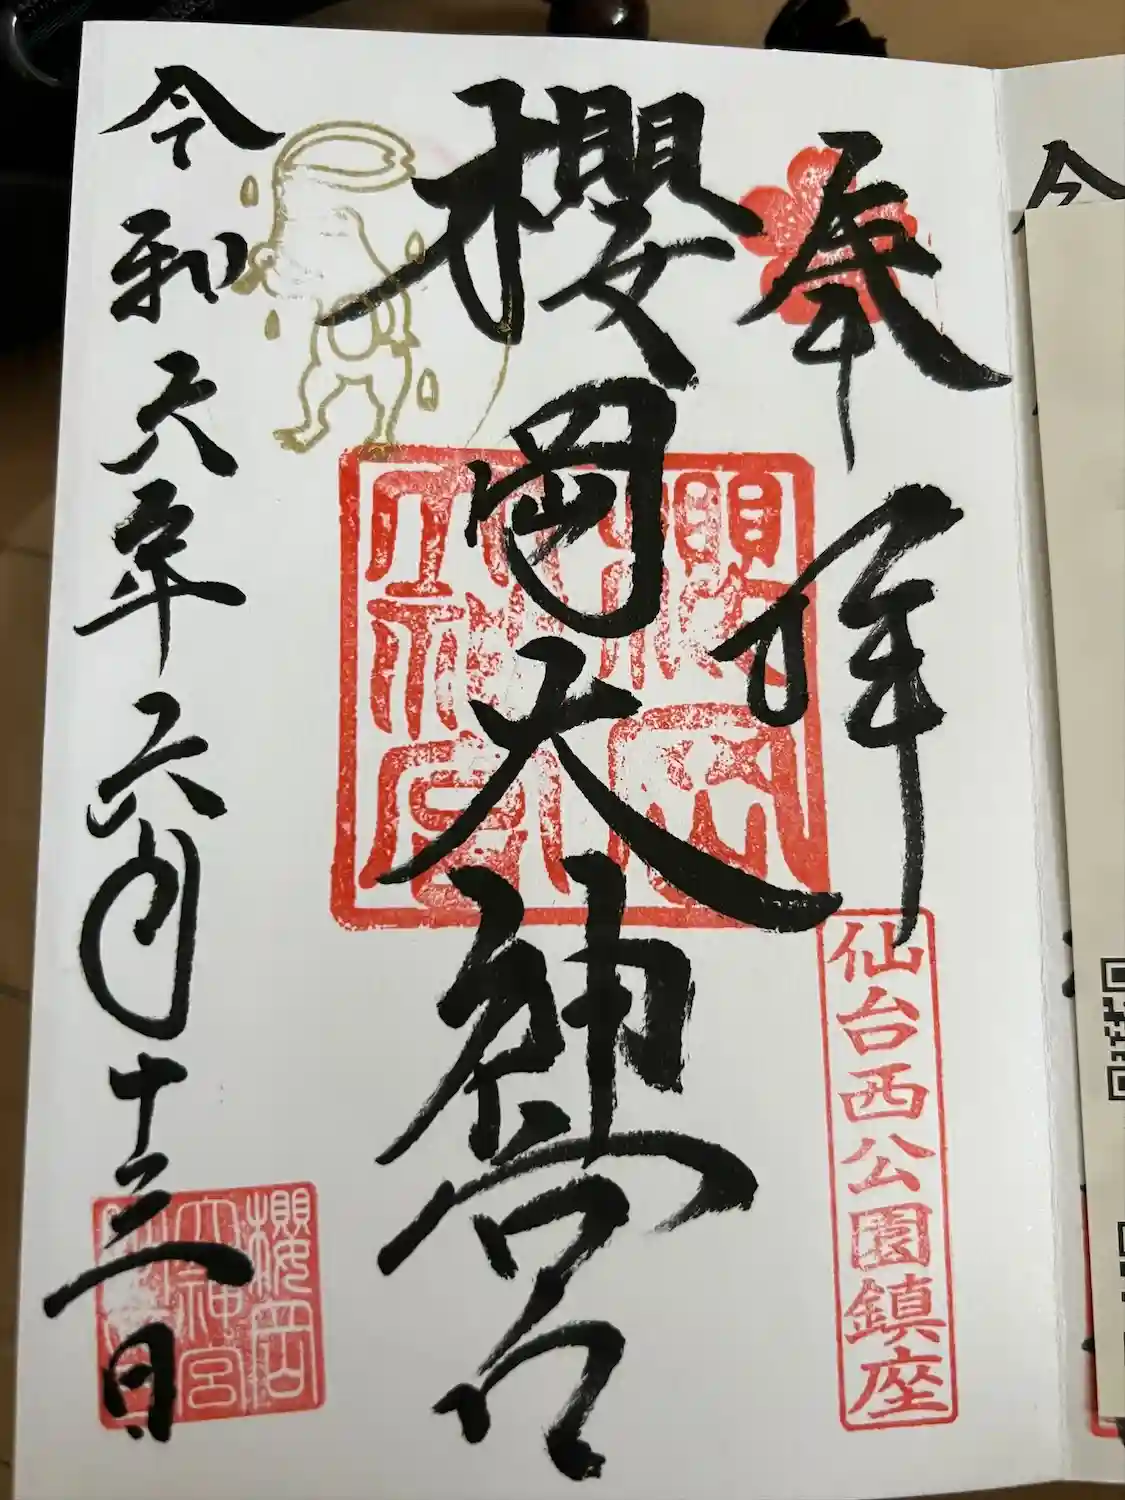 奉拝
仙台西公園鎮座
櫻岡大神宮
櫻岡大神宮
令和六年六月十三日
櫻岡
大神宮
令